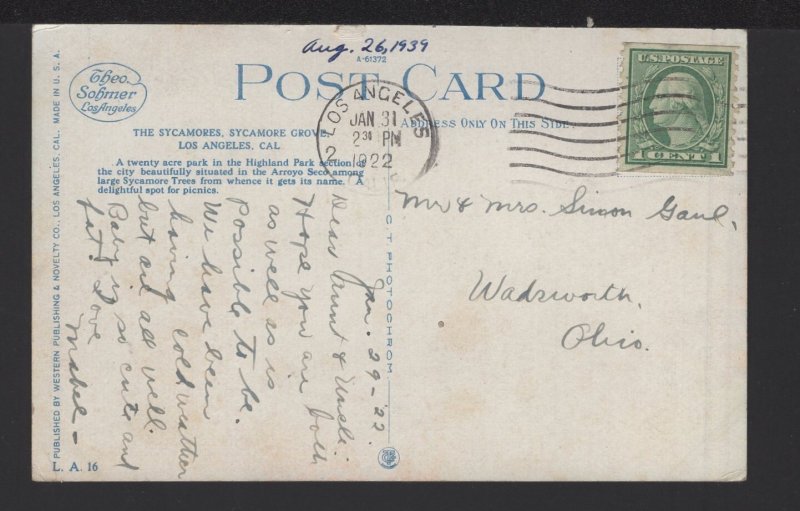 Aug. 26, 1939
A-61372
POST CARD
Theo.
Sohmer
Los Angeles
ADDRESS ONLY ON THIS SIDE
THE SYCAMORES, SYCAMORE GROVE,
LOS ANGELES, CAL
A twenty acre park in the Highland Park section of
the city beautifully situated in the Arroyo Seco among
large Sycamore Trees from whence it gets its name. A
delightful spot for picnics.
LOS ANGELES
JAN 31
2 30 PM
1922
2
U.S. POSTAGE
1 CENT 1
Mr & Mrs. Simon Gaul,
Wadsworth,
Ohio.
Jan. 29-'22.
Dear Aunt & Uncle:
Hope you are both
as well as is
possible to be.
We have been
having cold weather
but are all well.
Baby is so cute and
fat. Love
Mabel-
C. T. PHOTOCHROM
PUBLISHED BY WESTERN PUBLISHING & NOVELTY CO., LOS ANGELES, CAL. MADE IN U. S. A.
L. A. 16